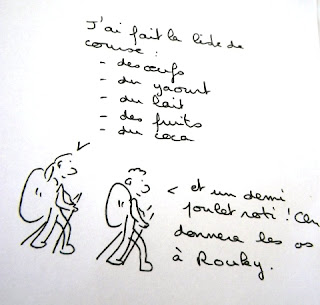 J'ai fait la liste de
course :
- des œufs
- du yaourt
- du lait
- des fruits
- du coca
< et un demi
poulet roti ! On
donnera les os
à Rouky.